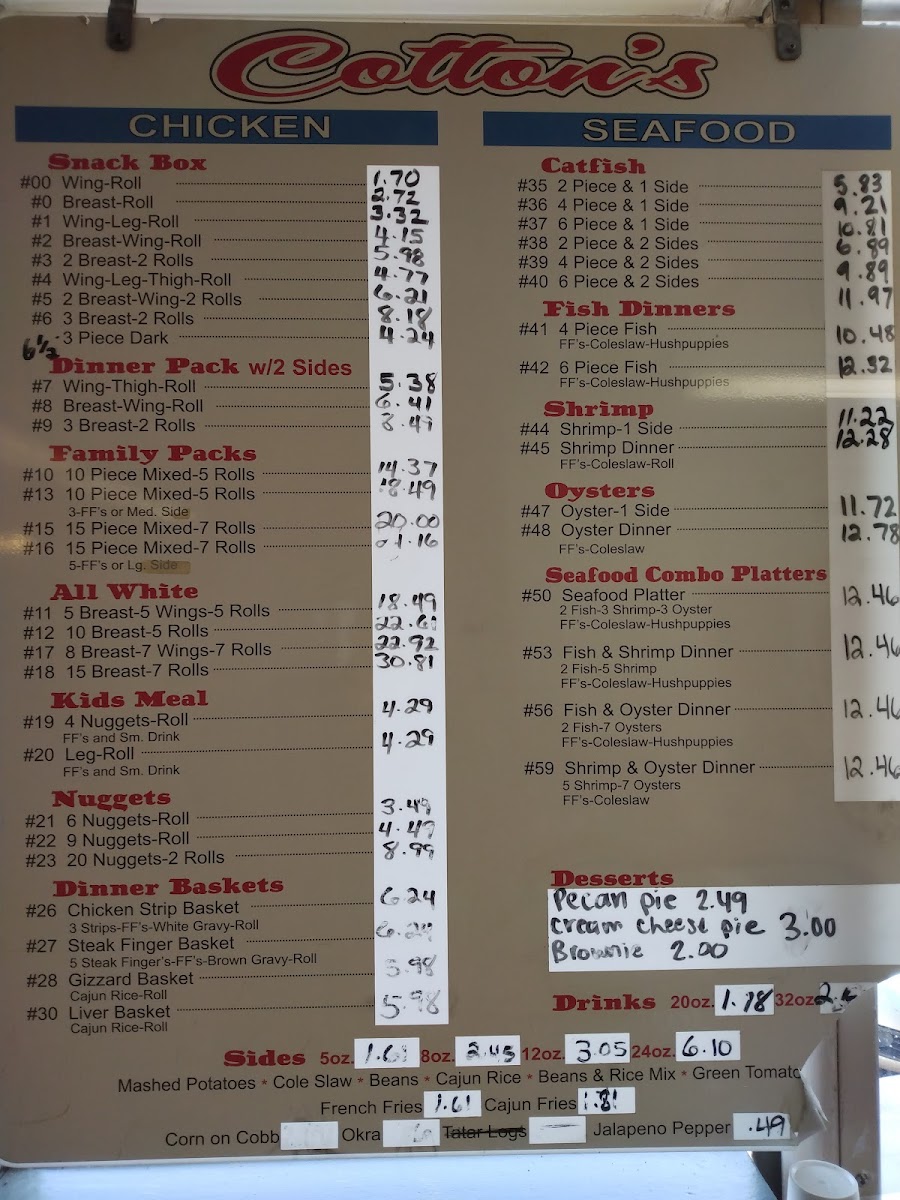 Cotton's
CHICKEN
Snack Box
#00 Wing-Roll 1.70
#0 Breast-Roll 2.72
#1 Wing-Leg-Roll 3.32
#2 Breast-Wing-Roll 4.15
#3 2 Breast-2 Rolls 5.98
#4 Wing-Leg-Thigh-Roll 4.77
#5 2 Breast-Wing-2 Rolls 6.21
#6 3 Breast-2 Rolls 8.18
6½ 3 Piece Dark 4.24
Dinner Pack w/2 Sides
#7 Wing-Thigh-Roll 5.38
#8 Breast-Wing-Roll 6.41
#9 3 Breast-2 Rolls 8.49
Family Packs
#10 10 Piece Mixed-5 Rolls 14.37
#13 10 Piece Mixed-5 Rolls 18.49
3-FF's or Med. Side
#15 15 Piece Mixed-7 Rolls 20.00
#16 15 Piece Mixed-7 Rolls
5-FF's or Lg. Side
All White
#11 5 Breast-5 Wings-5 Rolls 18.49
#12 10 Breast-5 Rolls 22.61
#17 8 Breast-7 Wings-7 Rolls 22.92
#18 15 Breast-7 Rolls 30.81
Kids Meal
#19 4 Nuggets-Roll 4.29
FF's and Sm. Drink
#20 Leg-Roll 4.29
FF's and Sm. Drink
Nuggets
#21 6 Nuggets-Roll 3.49
#22 9 Nuggets-Roll 4.49
#23 20 Nuggets-2 Rolls 8.99
Dinner Baskets
#26 Chicken Strip Basket 6.24
3 Strips-FF's-White Gravy-Roll
#27 Steak Finger Basket 6.24
5 Steak Finger's-FF's-Brown Gravy-Roll
#28 Gizzard Basket 5.98
Cajun Rice-Roll
#30 Liver Basket 5.98
Cajun Rice-Roll
SEAFOOD
Catfish
#35 2 Piece & 1 Side 5.83
#36 4 Piece & 1 Side 9.21
#37 6 Piece & 1 Side 10.81
#38 2 Piece & 2 Sides 6.89
#39 4 Piece & 2 Sides 9.89
#40 6 Piece & 2 Sides 11.97
Fish Dinners
#41 4 Piece Fish 10.48
FF's-Coleslaw-Hushpuppies
#42 6 Piece Fish 12.32
FF's-Coleslaw-Hushpuppies
Shrimp
#44 Shrimp-1 Side 11.22
#45 Shrimp Dinner 12.28
FF's-Coleslaw-Roll
Oysters
#47 Oyster-1 Side 11.72
#48 Oyster Dinner 12.78
FF's-Coleslaw
Seafood Combo Platters
#50 Seafood Platter 12.46
2 Fish-3 Shrimp-3 Oyster
FF's-Coleslaw-Hushpuppies
#53 Fish & Shrimp Dinner 12.46
2 Fish-5 Shrimp
FF's-Coleslaw-Hushpuppies
#56 Fish & Oyster Dinner 12.46
2 Fish-7 Oysters
FF's-Coleslaw-Hushpuppies
#59 Shrimp & Oyster Dinner 12.46
5 Shrimp-7 Oysters
FF's-Coleslaw
Desserts
Pecan pie 2.49
cream cheese pie 3.00
Brownie 2.00
Drinks 20oz. 1.78 32oz
Sides 5oz. 1.61 8oz. 2.45 12oz. 3.05 24oz. 6.10
Mashed Potatoes * Cole Slaw * Beans * Cajun Rice * Beans & Rice Mix * Green Tomato
French Fries 1.61 Cajun Fries 1.81
Corn on Cobb Okra Tatar Logs Jalapeno Pepper .49